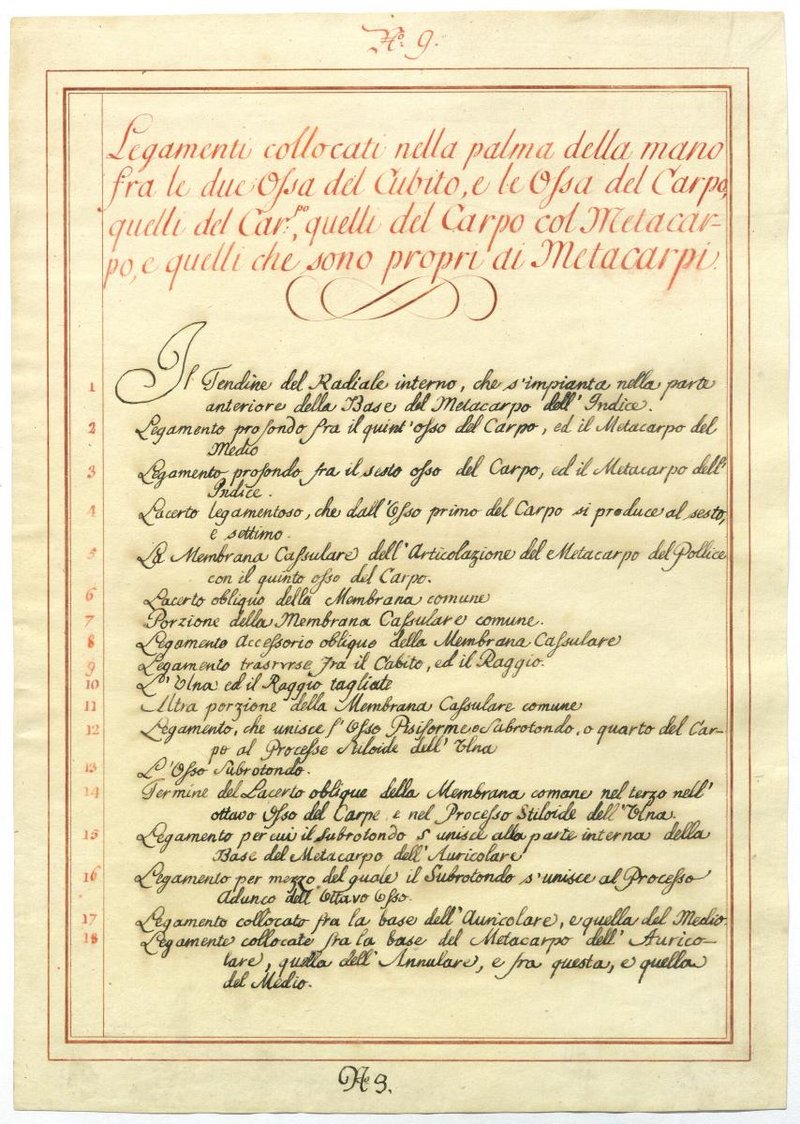 No. 9.
Legamenti collocati nella palma della mano
fra le due Ossa del Cubito, e le Ossa del Carpo,
quelli del Car.po, quelli del Carpo col Metacar-
po, e quelli che sono propri di Metacarpi.
1 Il Tendine del Radiale interno, che s'impianta nella parte
anteriore della Base del Metacarpo dell' Indice.
2 Legamento profondo fra il quint'osso del Carpo, ed il Metacarpo del
Medio
3 Legamento profondo fra il sesto osso del Carpo, ed il Metacarpo dell'
Indice.
4 Lacerto legamentoso, che dall'Osso primo del Carpo si produce al sesto,
e settimo.
5 La Membrana Cassulare dell'Articolazione del Metacarpo del Pollice
con il quinto osso del Carpo.
6 Lacerto obliquo della Membrana comune
7 Porzione della Membrana Cassulare comune.
8 Legamento Accessorio obliquo della Membrana Cassulare
9 Legamento trasrvrse fra il Cubito, ed il Raggio.
10 L'Ulna ed il Raggio tagliate
11 Altra porzione della Membrana Cassulare comune
12 Legamento, che unisce l'Osso Pisiforme o Subrotondo, o quarto del Car-
po al Processe Stiloide dell'Ulna
13 L'Osso Subrotondo.
14 Termine del Lacerto oblique della Membrana comane nel terzo nell'
ottavo Osso del Carpe e nel Processo Stiloide dell'Ulna.
15 Legamento per cui il Subrotondo s'unisce alla parte interna della
Base del Metacarpo dell'Auricolare
16 Legamento per mezzo del quale il Subrotondo s'unisce al Processo
Adunco dell'Ottavo Osso.
17 Legamento collocato fra la base dell'Auricolare, e quella del Medio.
18 Legamente collocate fra la base del Metacarpo dell' Aurico-
lare, quella dell' Annulare, e fra questa, e quella
del Medio.
No 9.